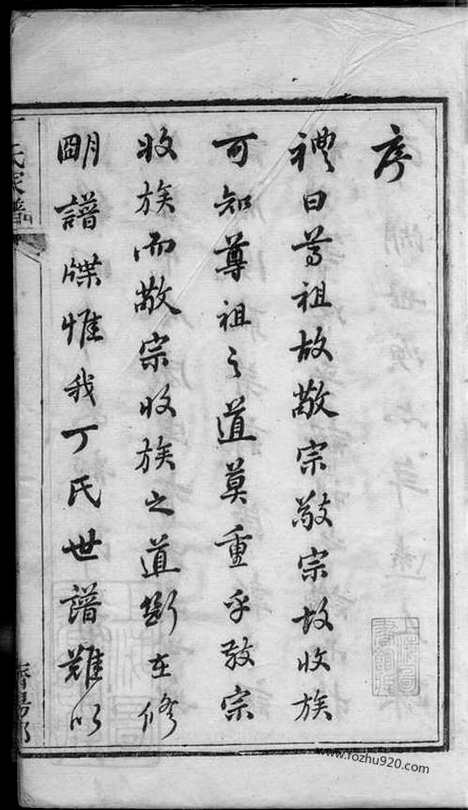 序
禮曰尊祖故敬宗敬宗故收族
可知尊祖之道莫重乎敬宗
收族而敬宗收族之道斷在修
明譜牒惟我丁氏世譜雖以
丁氏家譜
濟陽郡
www.fozhu920.com